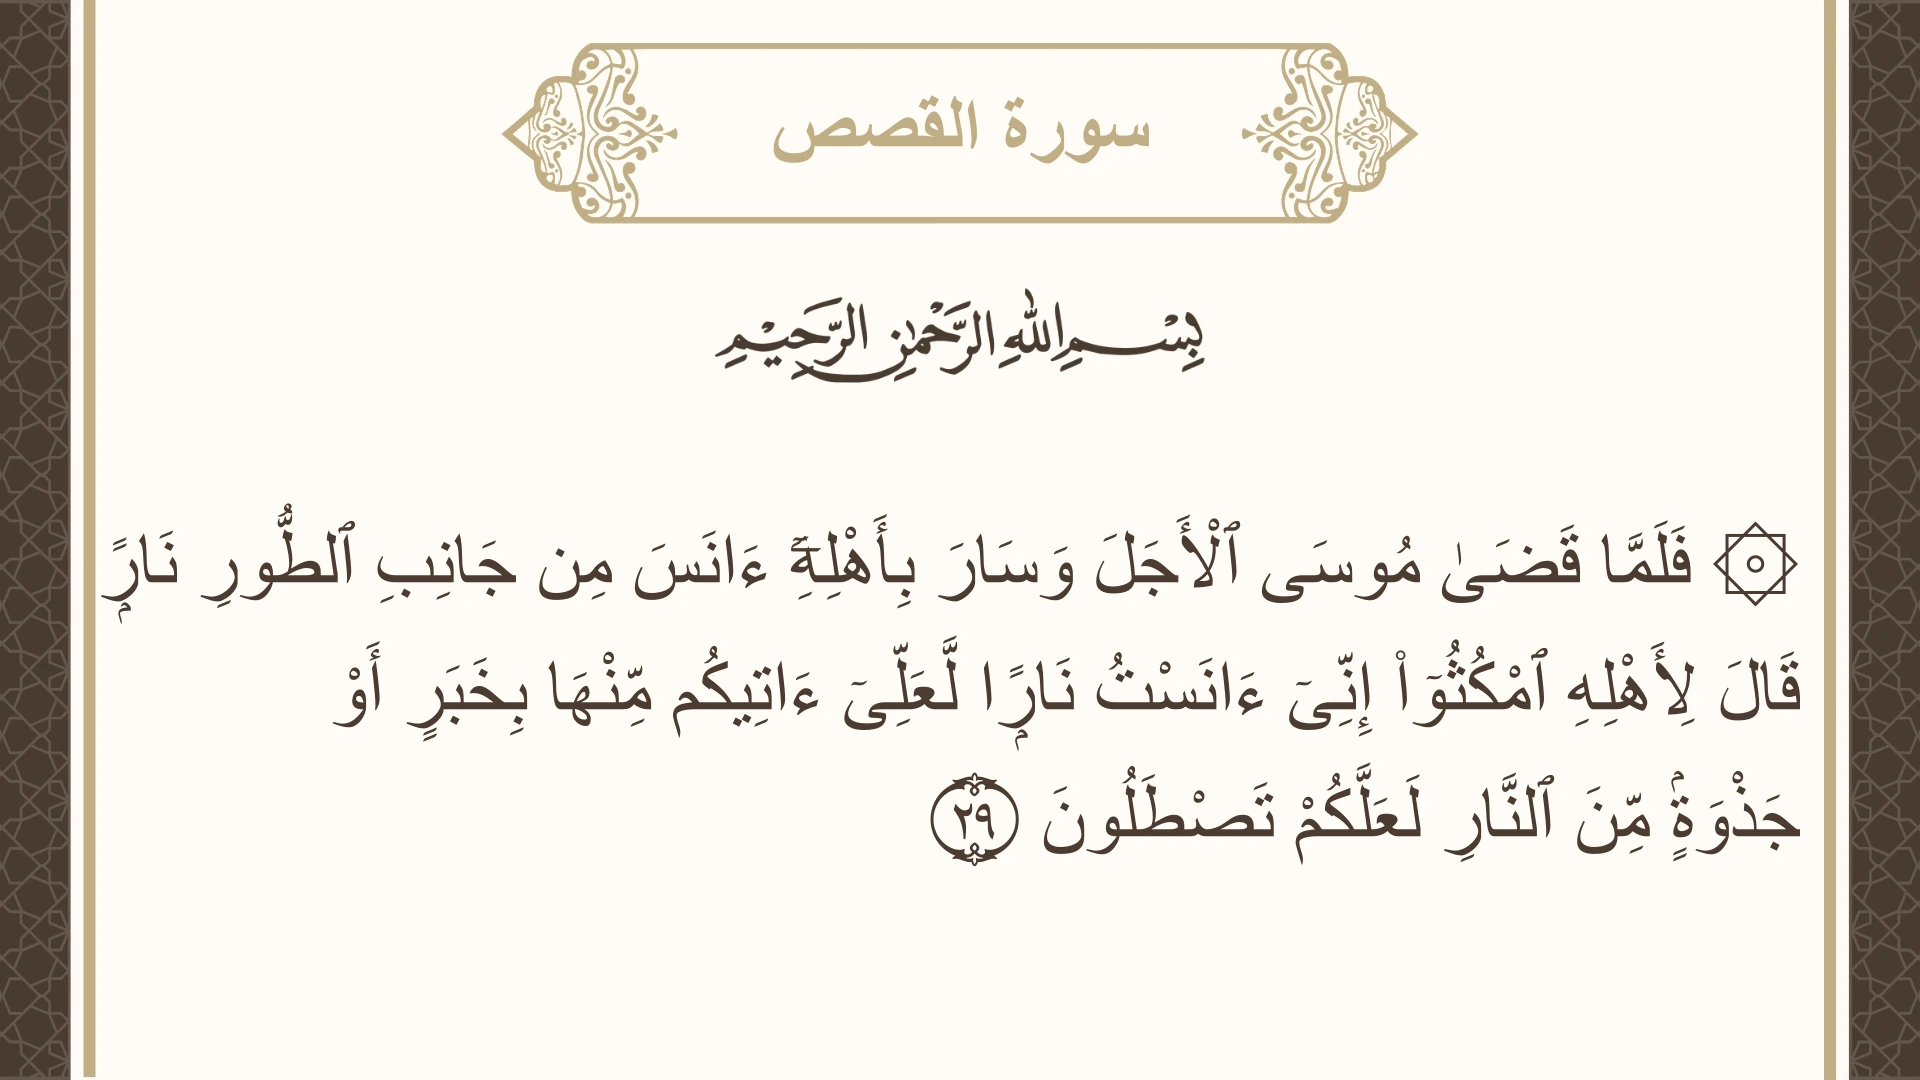 سورة القصص
بِسْمِ اللهِ الرَّحْمٰنِ الرَّحِيْمِ
۞ فَلَمَّا قَضَىٰ مُوسَى ٱلْأَجَلَ وَسَارَ بِأَهْلِهِۦٓ ءَانَسَ مِن جَانِبِ ٱلطُّورِ نَارًۭ
قَالَ لِأَهْلِهِ ٱمْكُثُوٓا۟ إِنِّىٓ ءَانَسْتُ نَارًۭا لَّعَلِّىٓ ءَاتِيكُم مِّنْهَا بِخَبَرٍ أَوْ
جَذْوَةٍۢ مِّنَ ٱلنَّارِ لَعَلَّكُمْ تَصْطَلُونَ ٢٩